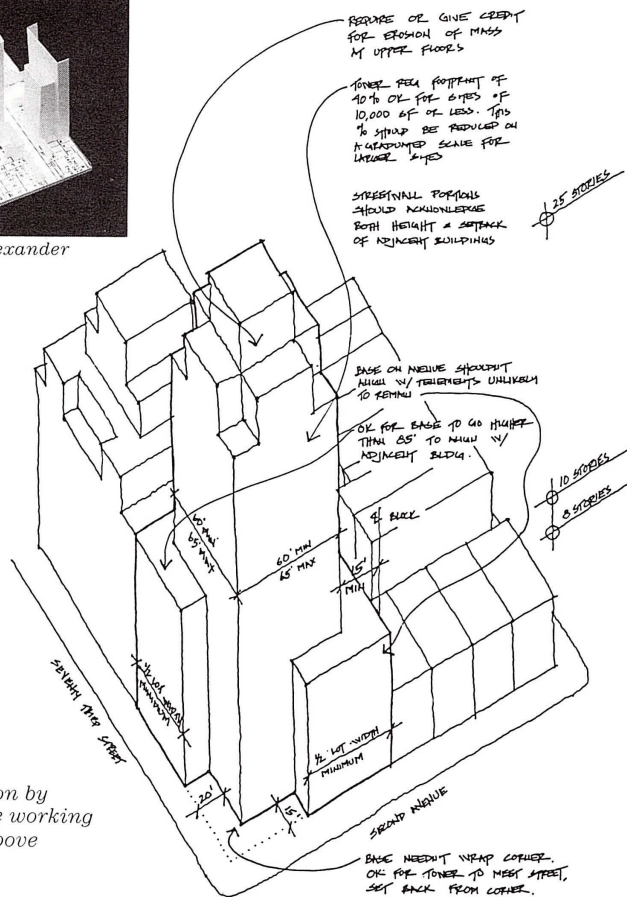 REQUIRE OR GIVE CREDIT
FOR EROSION OF MASS
AT UPPER FLOORS
TOWER REQ FOOTPRINT OF
40% OK FOR SITES OF
10,000 SF OR LESS. THIS
% SHOULD BE REDUCED ON
A GRADUATED SCALE FOR
LARGER SITES
STREETWALL PORTIONS
SHOULD ACKNOWLEDGE
BOTH HEIGHT & SETBACK
OF ADJACENT BUILDINGS
25 STORIES
exander
BASE ON AVENUE SHOULDN'T
ALIGN W/ TENEMENTS UNLIKELY
TO REMAIN
OK FOR BASE TO GO HIGHER
THAN 85' TO ALIGN W/
ADJACENT BLDG.
10 STORIES
8 STORIES
60' MIN
65' MAX
60' MIN
65' MAX
BLOCK
15'
MIN
1/2 LOT WIDTH
MINIMUM
1/2 LOT WIDTH
MINIMUM
SEVENTY THIRD STREET
20'
15'
SECOND AVENUE
on by
e working
bove
BASE NEEDN'T WRAP CORNER.
OK FOR TOWER TO MEET STREET,
SET BACK FROM CORNER.